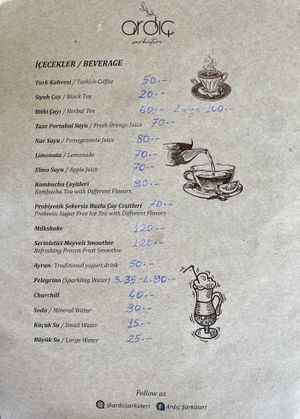 ardıç
şarküteri
İÇECEKLER / BEVERAGE
Türk Kahvesi / Turkish Coffee 50.--
Siyah Çay / Black Tea 20.--
Bitki Çayı / Herbal Tea 60.-- Large 100.--
Taze Portakal Suyu / Fresh Orange Juice 70.--
Nar Suyu / Pomegranate Juice 80.--
Limonata / Lemonade 70.--
Elma Suyu / Apple Juice 70.--
Kombucha Çeşitleri 90.--
Kombucha Tea with Different Flavors
Probiyotik Şekersiz Buzlu Çay Çeşitleri 70.--
Probiotic Sugar Free Ice Tea with Different Flavors
Milkshake 120.--
Serinletici Meyveli Smoothie 120.--
Refreshing Frozen Fruit Smoothie
Ayran- Traditional yogurt drink 50.--
Pelegrino (Sparkling Water) S.35.-L.90.--
Churchill 40.--
Soda / Mineral Water 30.--
Küçük Su / Small Water 15.--
Büyük Su / Large Water 25.--
Follow us
@ardicsarkuteri Ardıç Şarküteri